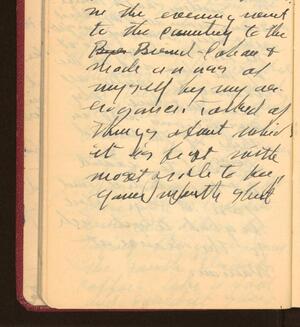 in the evening went
to the country to the
Brend-Cohan &
made an ass of
myself by my ar-
rogance. Talked of
things about which
it is best with
most people to keep
your mouth shut